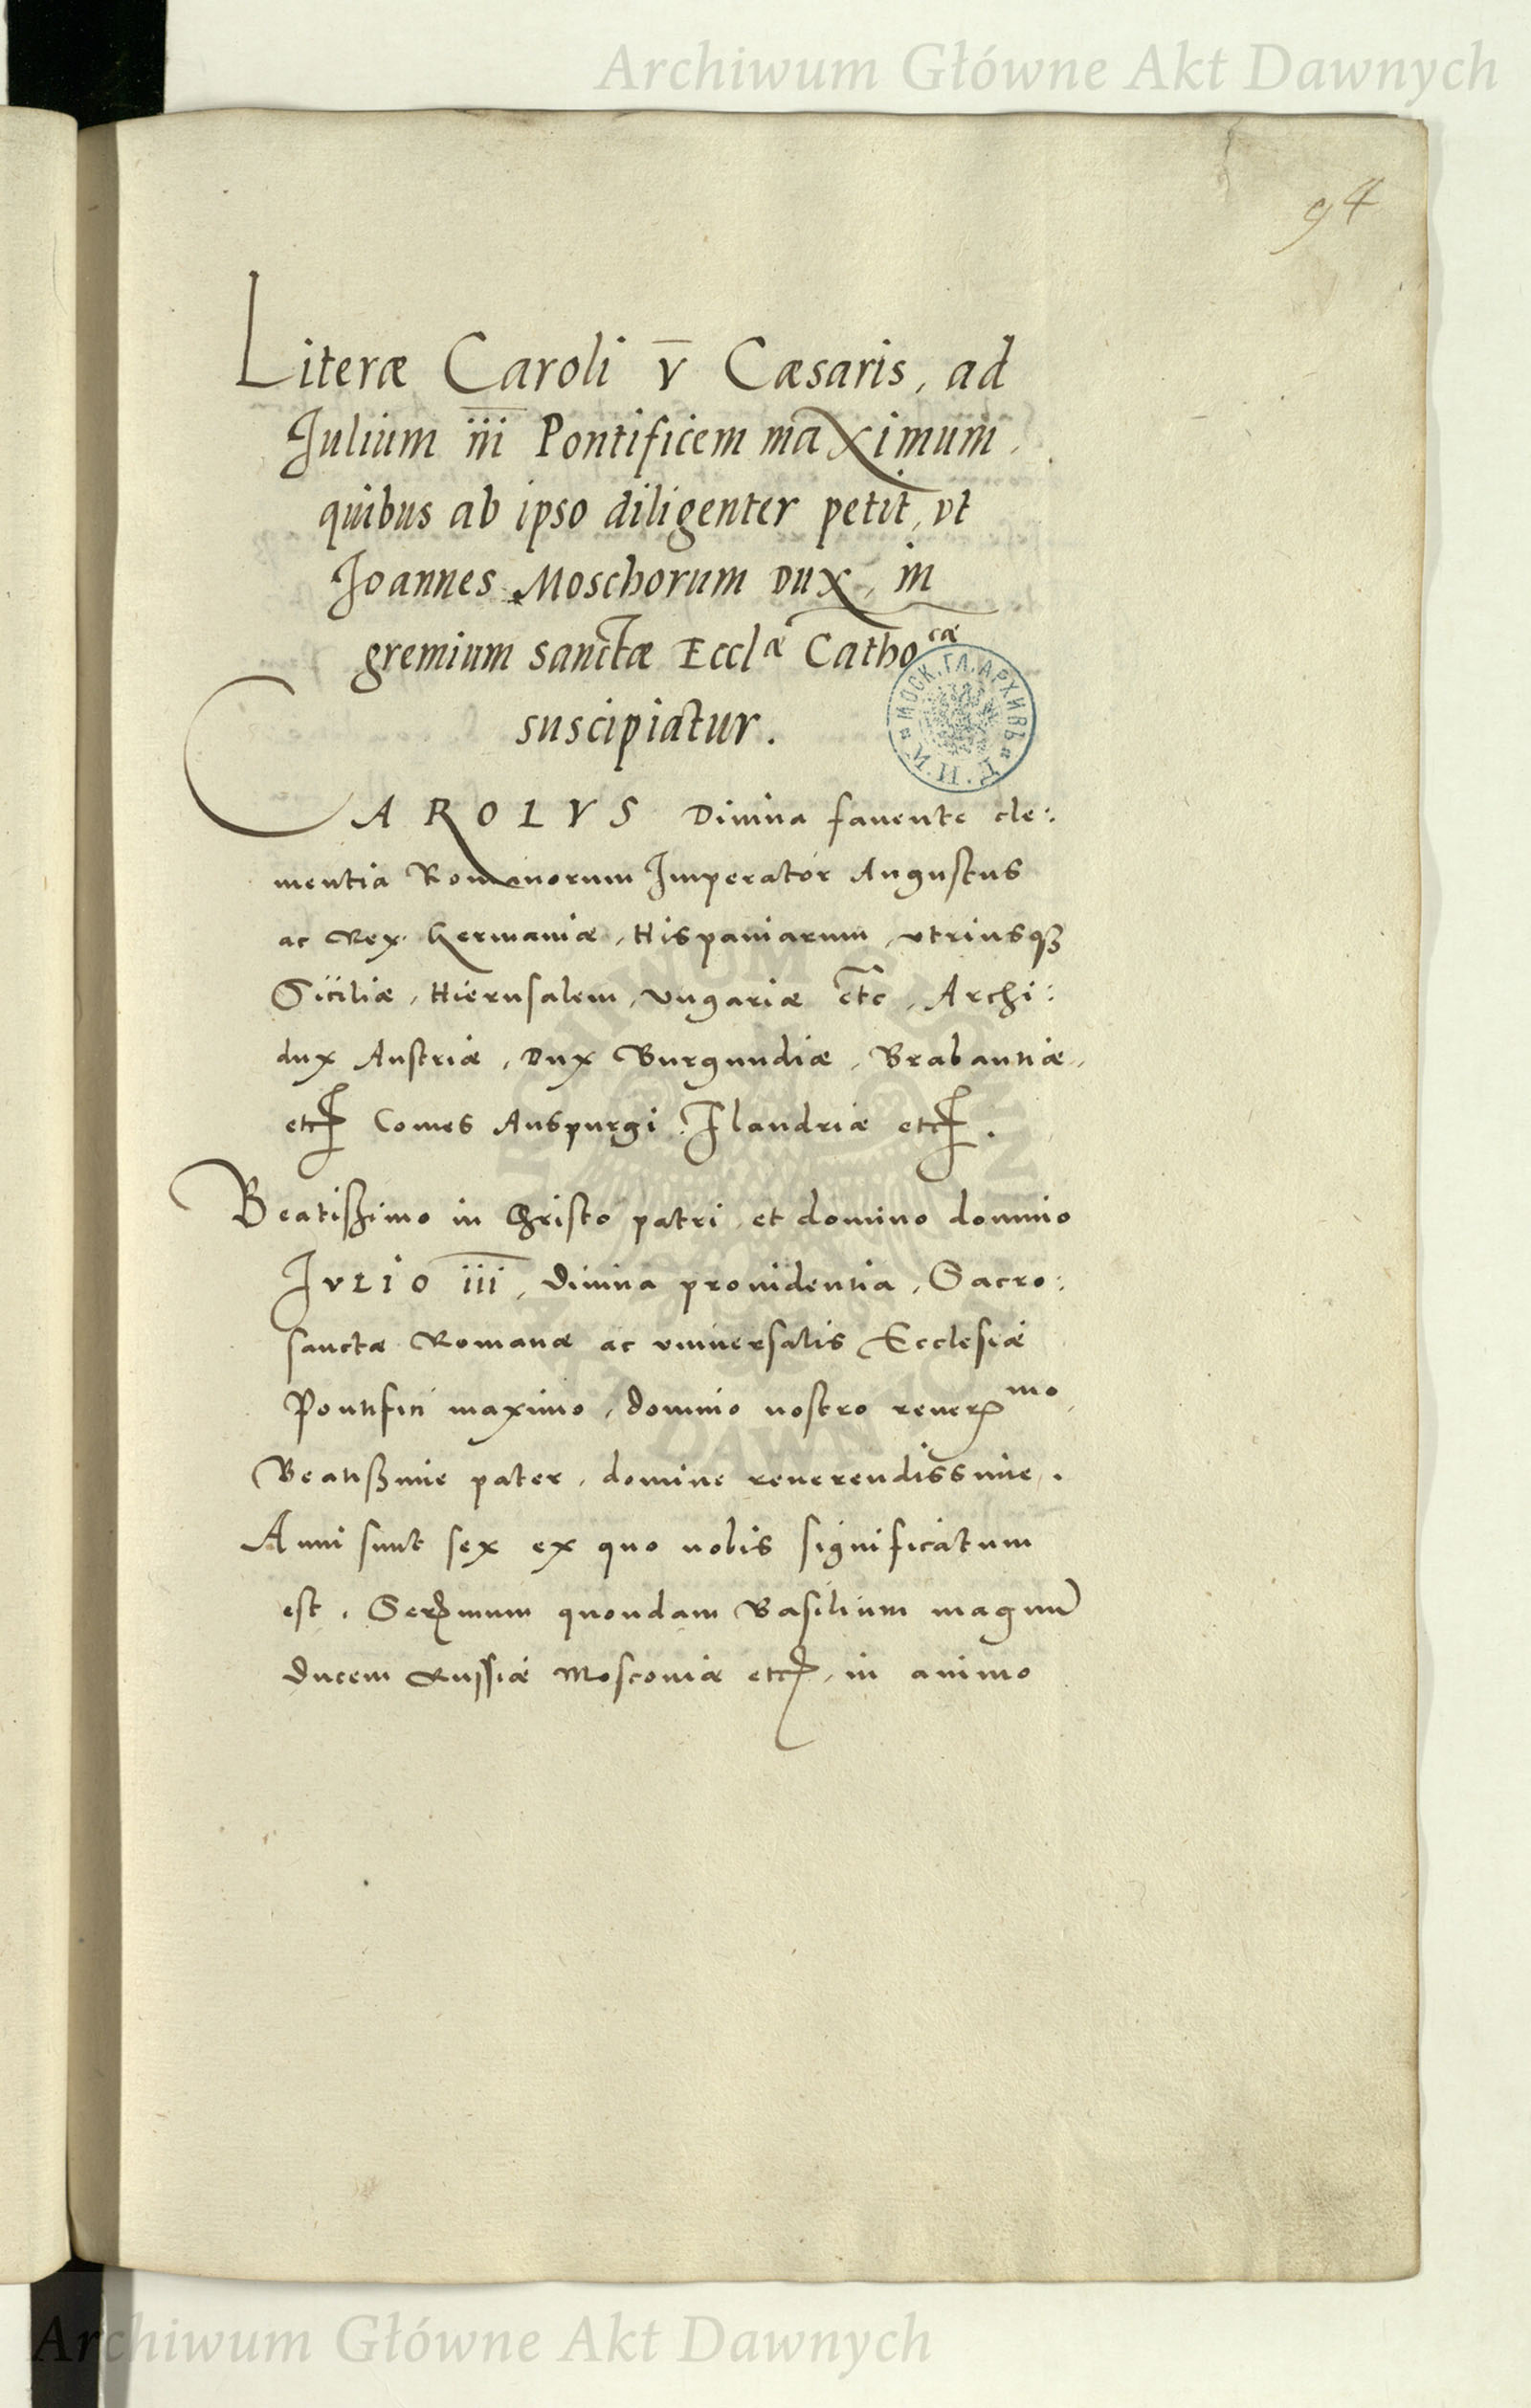 Archiwum Główne Akt Dawnych
94
Literæ Caroli V Cæsaris, ad
Julium iii Pontificem maximum,
quibus ab ipso diligenter petit, vt
Joannes Moschorum Dux, in
gremium sanctæ Ecclæ Cathocæ
suscipiatur.
МОСК. ГЛ. АРХИВЪ
М. И. Д.
CAROLVS Diuina fauente cle:
mentia Romanorum Imperator Augustus
ac Rex Germaniæ, Hispaniarum, vtriusqȝ
Siciliæ, Hierusalem, Vngariæ etc, Archi:
dux Austriæ, Dux Burgundiæ, Brabantiæ,
etc Comes Auspurgi Flandriæ etc.
Beatißimo in Christo patri et domino domino
Jvlio iii, diuina prouidentia, Sacro:
sanctæ Romanæ ac vniuersalis Ecclesiæ
Pontifici maximo, domino nostro reuermo,
Beatißime pater, domine reuerendissime.
Anni sunt sex ex quo nobis significatum
est, Sermum quondam Basilium magnū
ducem Russiæ Moscouiæ etc, in animo
ARCHIWUM GŁÓWNE
AKT DAWNYCH
Archiwum Główne Akt Dawnych